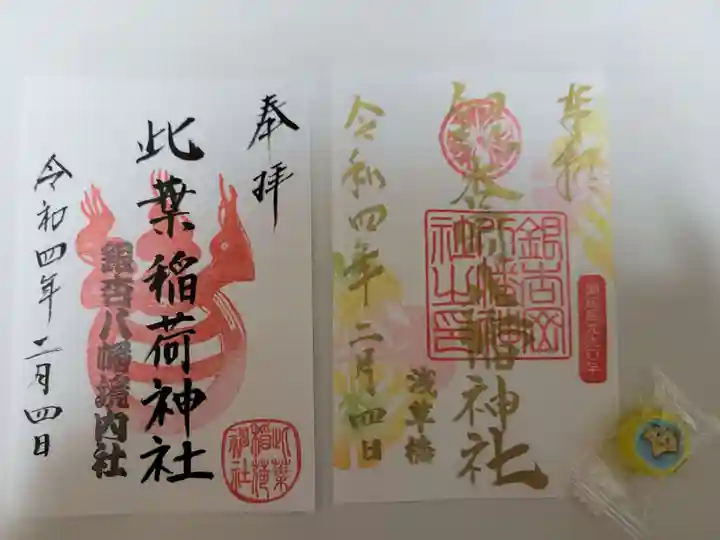 奉拝
此葉稲荷神社
銀杏八幡境内社
令和四年二月四日
此葉稲荷神社
奉拝
銀杏岡八幡神社
浅草橋
令和四年二月四日